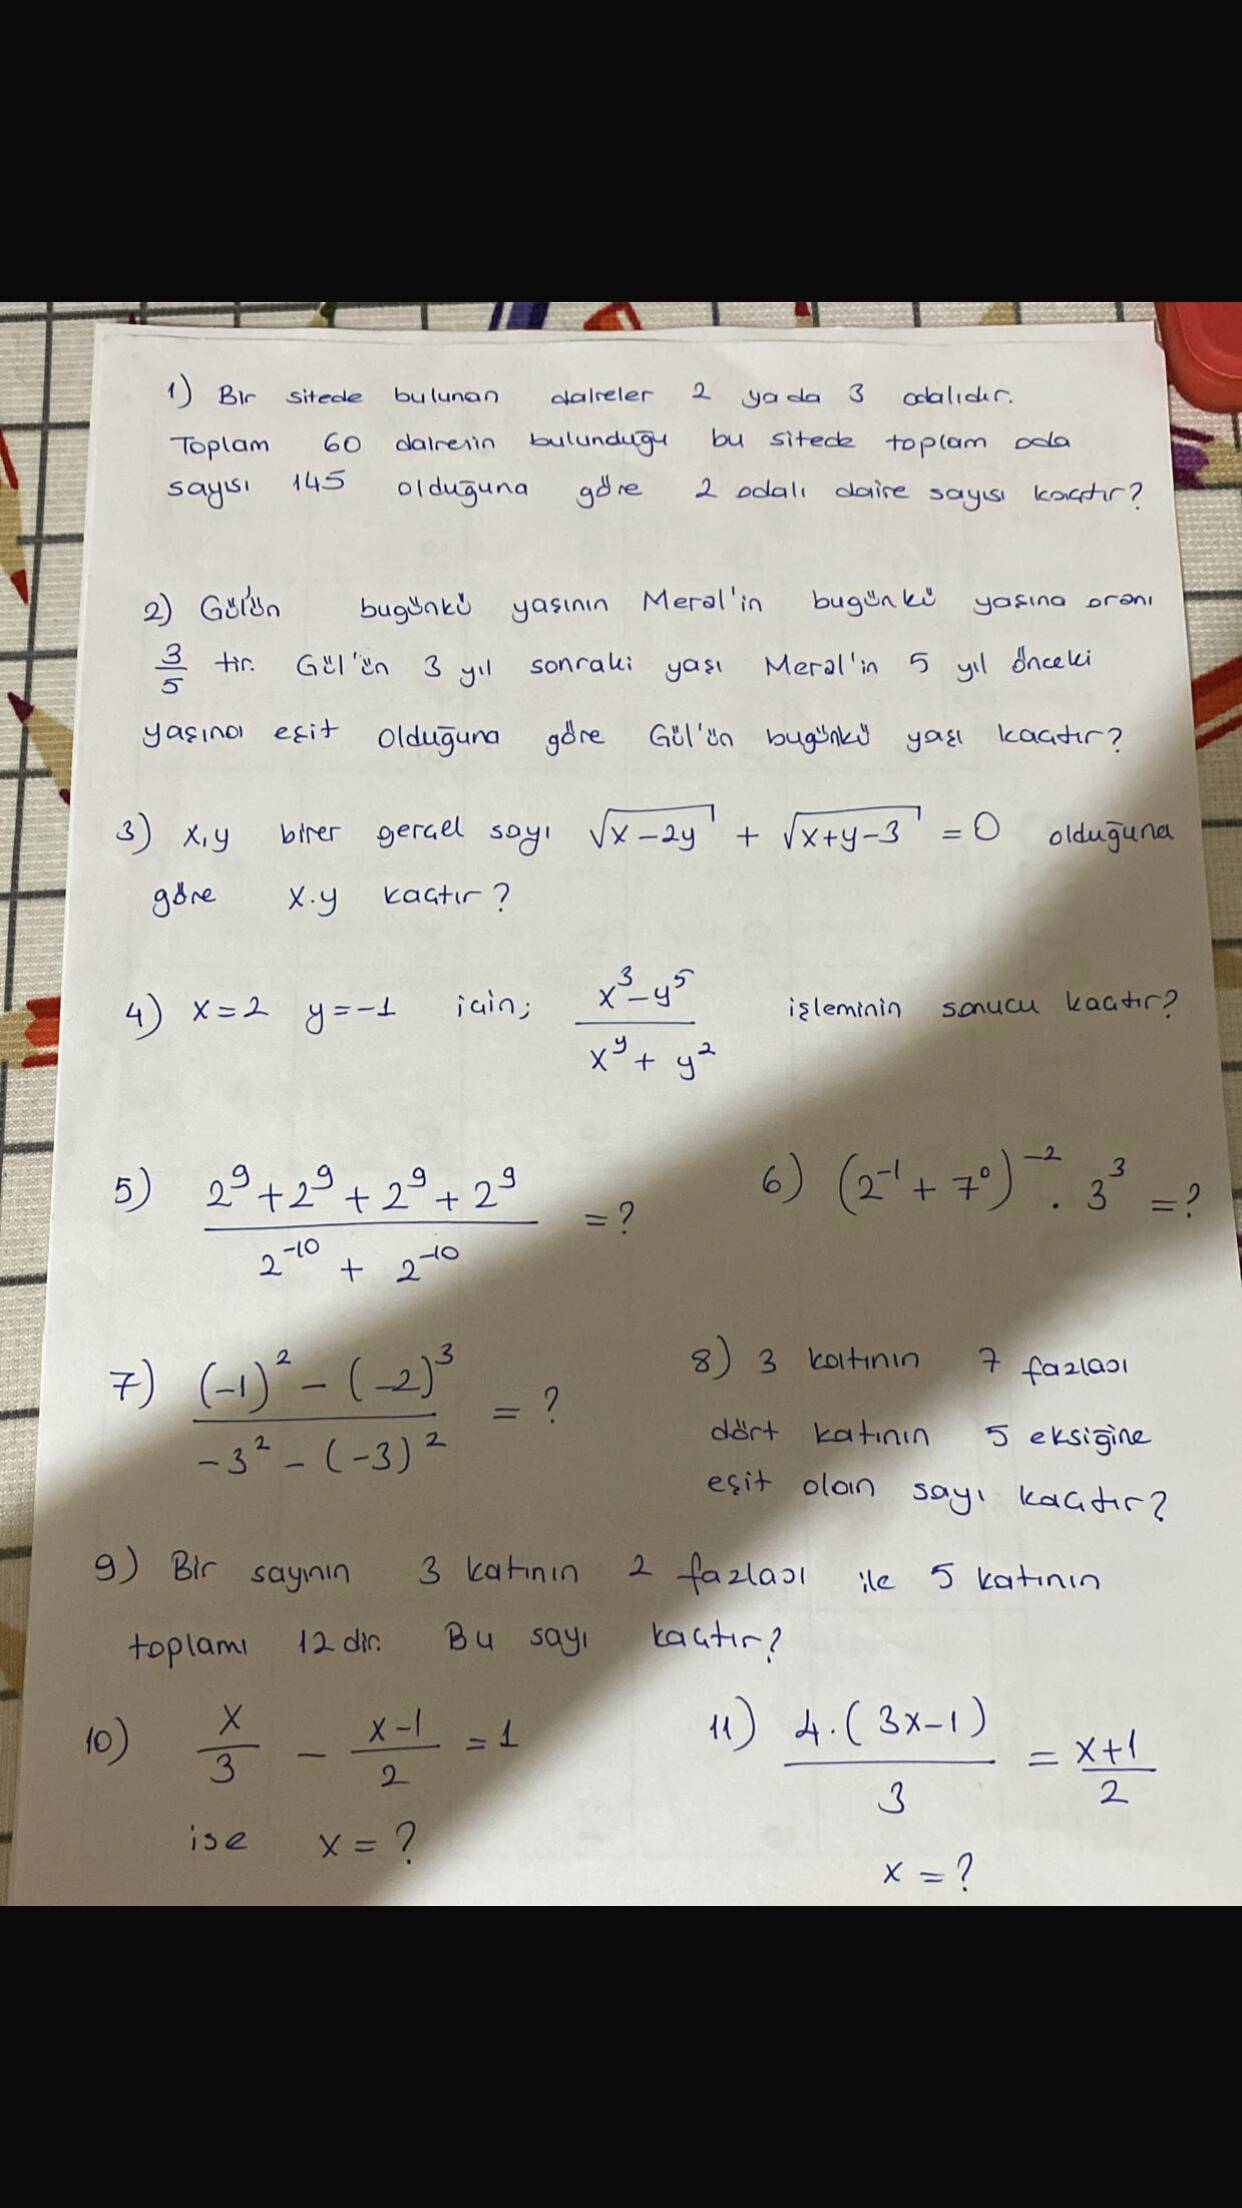 1) Bir sitede bulunan daireler 2 yada 3 odalıdır.
Toplam 60 dairenin bulunduğu bu sitede toplam oda
sayısı 145 olduğuna göre 2 odalı daire sayısı kaçtır?
2) Gül'ün bugünkü yaşının Meral'in bugünkü yaşına oranı
3/5 tir. Gül'ün 3 yıl sonraki yaşı Meral'in 5 yıl önceki
yaşına eşit olduğuna göre Gül'ün bugünkü yaşı kaçtır?
3) x,y birer gerçel sayı √(x-2y) + √(x+y-3) = 0 olduğuna
göre x.y kaçtır?
4) x=2 y=-1 için; (x³-y⁵)/(x^y + y²) işleminin sonucu kaçtır?
5) (2⁹+2⁹+2⁹+2⁹)/(2⁻¹⁰ + 2⁻¹⁰) = ?
6) (2⁻¹ + 7⁰)⁻² . 3³ = ?
7) ((-1)² - (-2)³)/(-3² - (-3)²) = ?
8) 3 katının 7 fazlası
dört katının 5 eksiğine
eşit olan sayı kaçtır?
9) Bir sayının 3 katının 2 fazlası ile 5 katının
toplamı 12 dir. Bu sayı kaçtır?
10) x/3 - (x-1)/2 = 1
ise x = ?
11) 4.(3x-1)/3 = (x+1)/2
x = ?